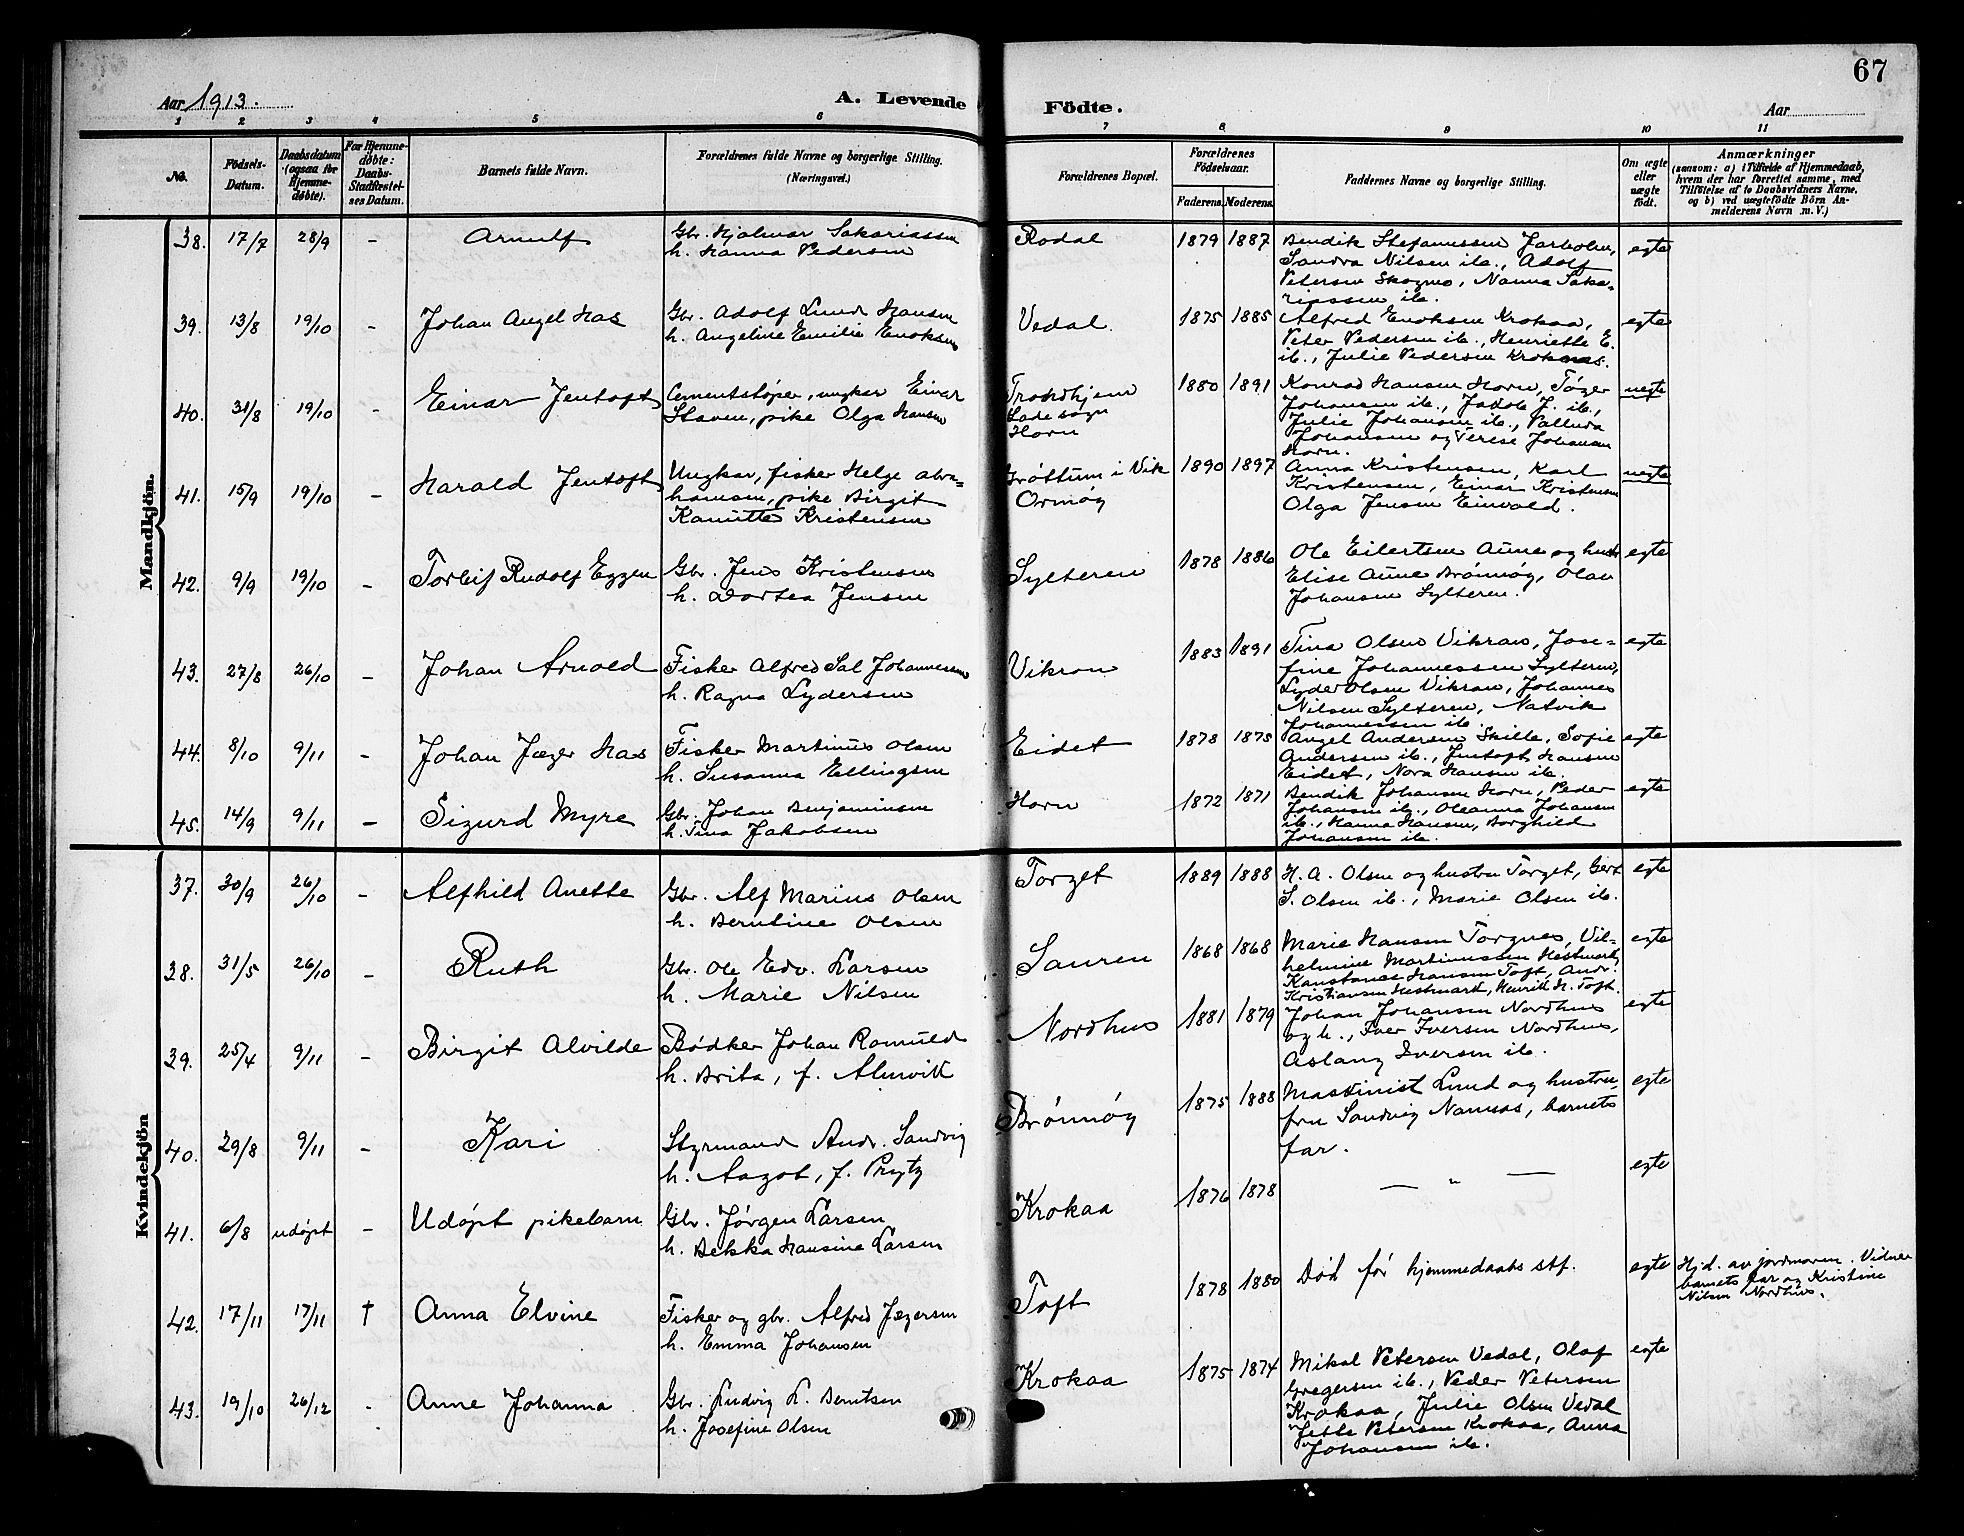 67
Aar 1913.
A. Levende
Födte.
Aar
1 2 3 4 5 6 7 8 9 10 11
No.
Födsels-
Datum.
Daabsdatum
(ogsaa for
Hjemme-
døbte).
For Hjemme-
døbte:
Daabs-
Stadfæstel-
ses Datum.
Barnets fulde Navn.
Forældrenes fulde Navne og borgerlige Stilling.
(Næringsvei.)
Forældrenes Bopæl.
Forældrenes
Födselsaar.
Faderens. Moderens.
Faddernes Navne og borgerlige Stilling.
Om ægte
eller
uægte
födt.
Anmærkninger
(saasom: a) i Tilfælde af Hjemmedaab,
hvem der har forrettet samme, med
Tilföielse af to Daabsvidners Navne,
og b) ved uægtefödte Börn An-
melderens Navn m. V.)
Mandkjön.
38. 17/7 28/9 - Arnulf
Gbr. Hjalmar Sakariassen
h. Hanna Pedersen
Rodal 1879 1887
Bendik Stefanussen Jarholm,
Sandra Nilsen ib., Adolf
Petersen Skogmo, Nanna Saka-
riassen ib.
egte
39. 13/8 19/10 - Johan Angel Has
Gbr. Adolf Lund Hansen
h. Angeline Emilie Enoksen
Vedal. 1875 1885
Alfred Enoksen Krokaa,
Peter Pedersen ib., Henriette E.
ib., Julie Pedersen Kroknas.
egte
40. 31/8 19/10 - Einar Jentoft
Cementstøper, ungkar Einar
Staven, pike Olga Hansen
Trondhjem
Lade sogn
Horn
1880 1891
Konrad Hansen Horn, Tøger
Johansen ib., Jakob J. ib.,
Julie Johansen ib., Palluda
Johansen og Verese Johansen
Horn.
uegte
41. 15/9 19/10 - Harald Jentoft
Ungkar, fisker Helge Abra-
hamsen, pike Birgit
Kamitte Kristensen
Grøttum i Vik
Ormøy
1890 1897
Anna Kristensen, Karl
Kristensen, Einar Kristensen
Olga Jensen Einvold.
uegte
42. 9/9 19/10 - Torleif Rudolf Eggen
Gbr. Jens Kristensen
h. Dortea Jensen
Sylteren 1878 1886
Ole Eilertsen Aune og hustr
Elise Aune Brønnøy, Olav
Johansen Sylteren.
egte
43. 27/8 26/10 - Johan Arnold
Fisker Alfred Sal Johannessen
h. Ragna Lydersen
Vikran 1883 1891
Tina Olsen Vikran, Jose-
fine Johannessen Sylteren,
Lyder Olsen Vikran, Johannes
Nilsen Sylteren, Natvik
Johannessen ib.
egte
44. 8/10 9/11 - Johan Jæger Has
Fisker Martinus Olsen
h. Susanna Ellingsen
Eidet 1878 1875
Angel Andersen Skille, Sofie
Andersen ib., Jentoft Hansen
Eidet, Nora Hansen ib.
egte
45. 14/9 9/11 - Sigurd Myre
Gbr. Johan Benjaminsen
h. Tina Jakobsen
Horn 1872 1871
Bendik Johansen Horn, Peder
Johansen ib., Oleanna Johansen
ib., Hanna Hansen, Borghild
Johansen ib.
egte
Kvindekjön
37. 30/9 26/10 - Alfhild Anette
Gbr. Alf Marius Olsen
h. Berntine Olsen
Torget 1889 1888
H. A. Olsen og hustru Torget, Gert
S. Olsen ib., Marie Olsen ib.
egte
38. 31/5 26/10 - Ruth
Gbr. Ole Edv. Larsen
h. Marie Nilsen
Sauren 1868 1868
Marie Hansen Torgnes, Vil-
helmine Martinussen Hestmark,
Konstanse Hansen Toft, Andr.
Kristiansen Hestmark, Henrik H. Toft.
egte
39. 25/4 9/11 - Birgit Alvilde
Bødker Johan Romuld
h. Brita, f. Almvik
Nordhus 1881 1879
Johan Johansen Nordhus
og h., Iver Iversen Nordhus,
Aslaug Iversen ib.
egte
40. 29/8 9/11 - Kari
Styrmand Andr. Sandvig
h. Aagot, f. Prytz
Brønnøy 1875 1888
Maskinist Lund og hustru,
fru Sandvig Namsos, barnets
far.
egte
41. 6/8 udøpt - Udøpt pikebarn
Gbr. Jørgen Larsen
h. Bekka Hansine Larsen
Krokaa 1876 1878
— „ —
egte
42. 17/11 17/11 † Anna Elvine
Fisker og gbr. Alfred Jægersen
h. Emma Johansen
Toft 1878 1880
Død før hjemmedaabs stf.
egte
Hjd. av jordmoren. Vidner
barnets far og Kristine
Nilsen Nordhus.
43. 19/10 26/12 - Anne Johanna
Gbr. Ludvig L. Berntsen
h. Josefine Olsen
Krokaa 1875 1874
Mikal Petersen Vedal, Olaf
Gregersen ib., Peder Petersen
Krokaa, Julie Olsen Vedal
Jette Petersen Krokaa, Anna
Johansen ib.
egte